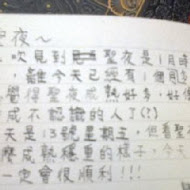 聖夜~
吹見到聖夜是1月時
，離今天已經有1個月
覺得聖夜成熟好多，好
成不認識的人了(?)
天是13號星期五，但看聖
麼成熟穩重的樣子，今天
一也會很順利!!!